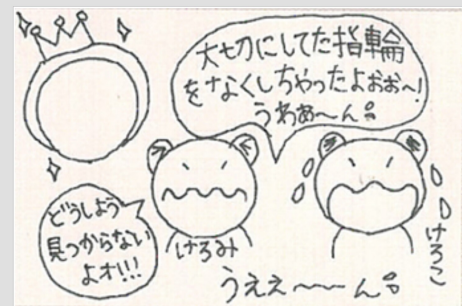 大切にしてた指輪
をなくしちゃったよおお〜!
うわあ〜ん。
どうしよう
見つからない
よォ!!!
けろみ
けろこ
うええ〜〜ん。